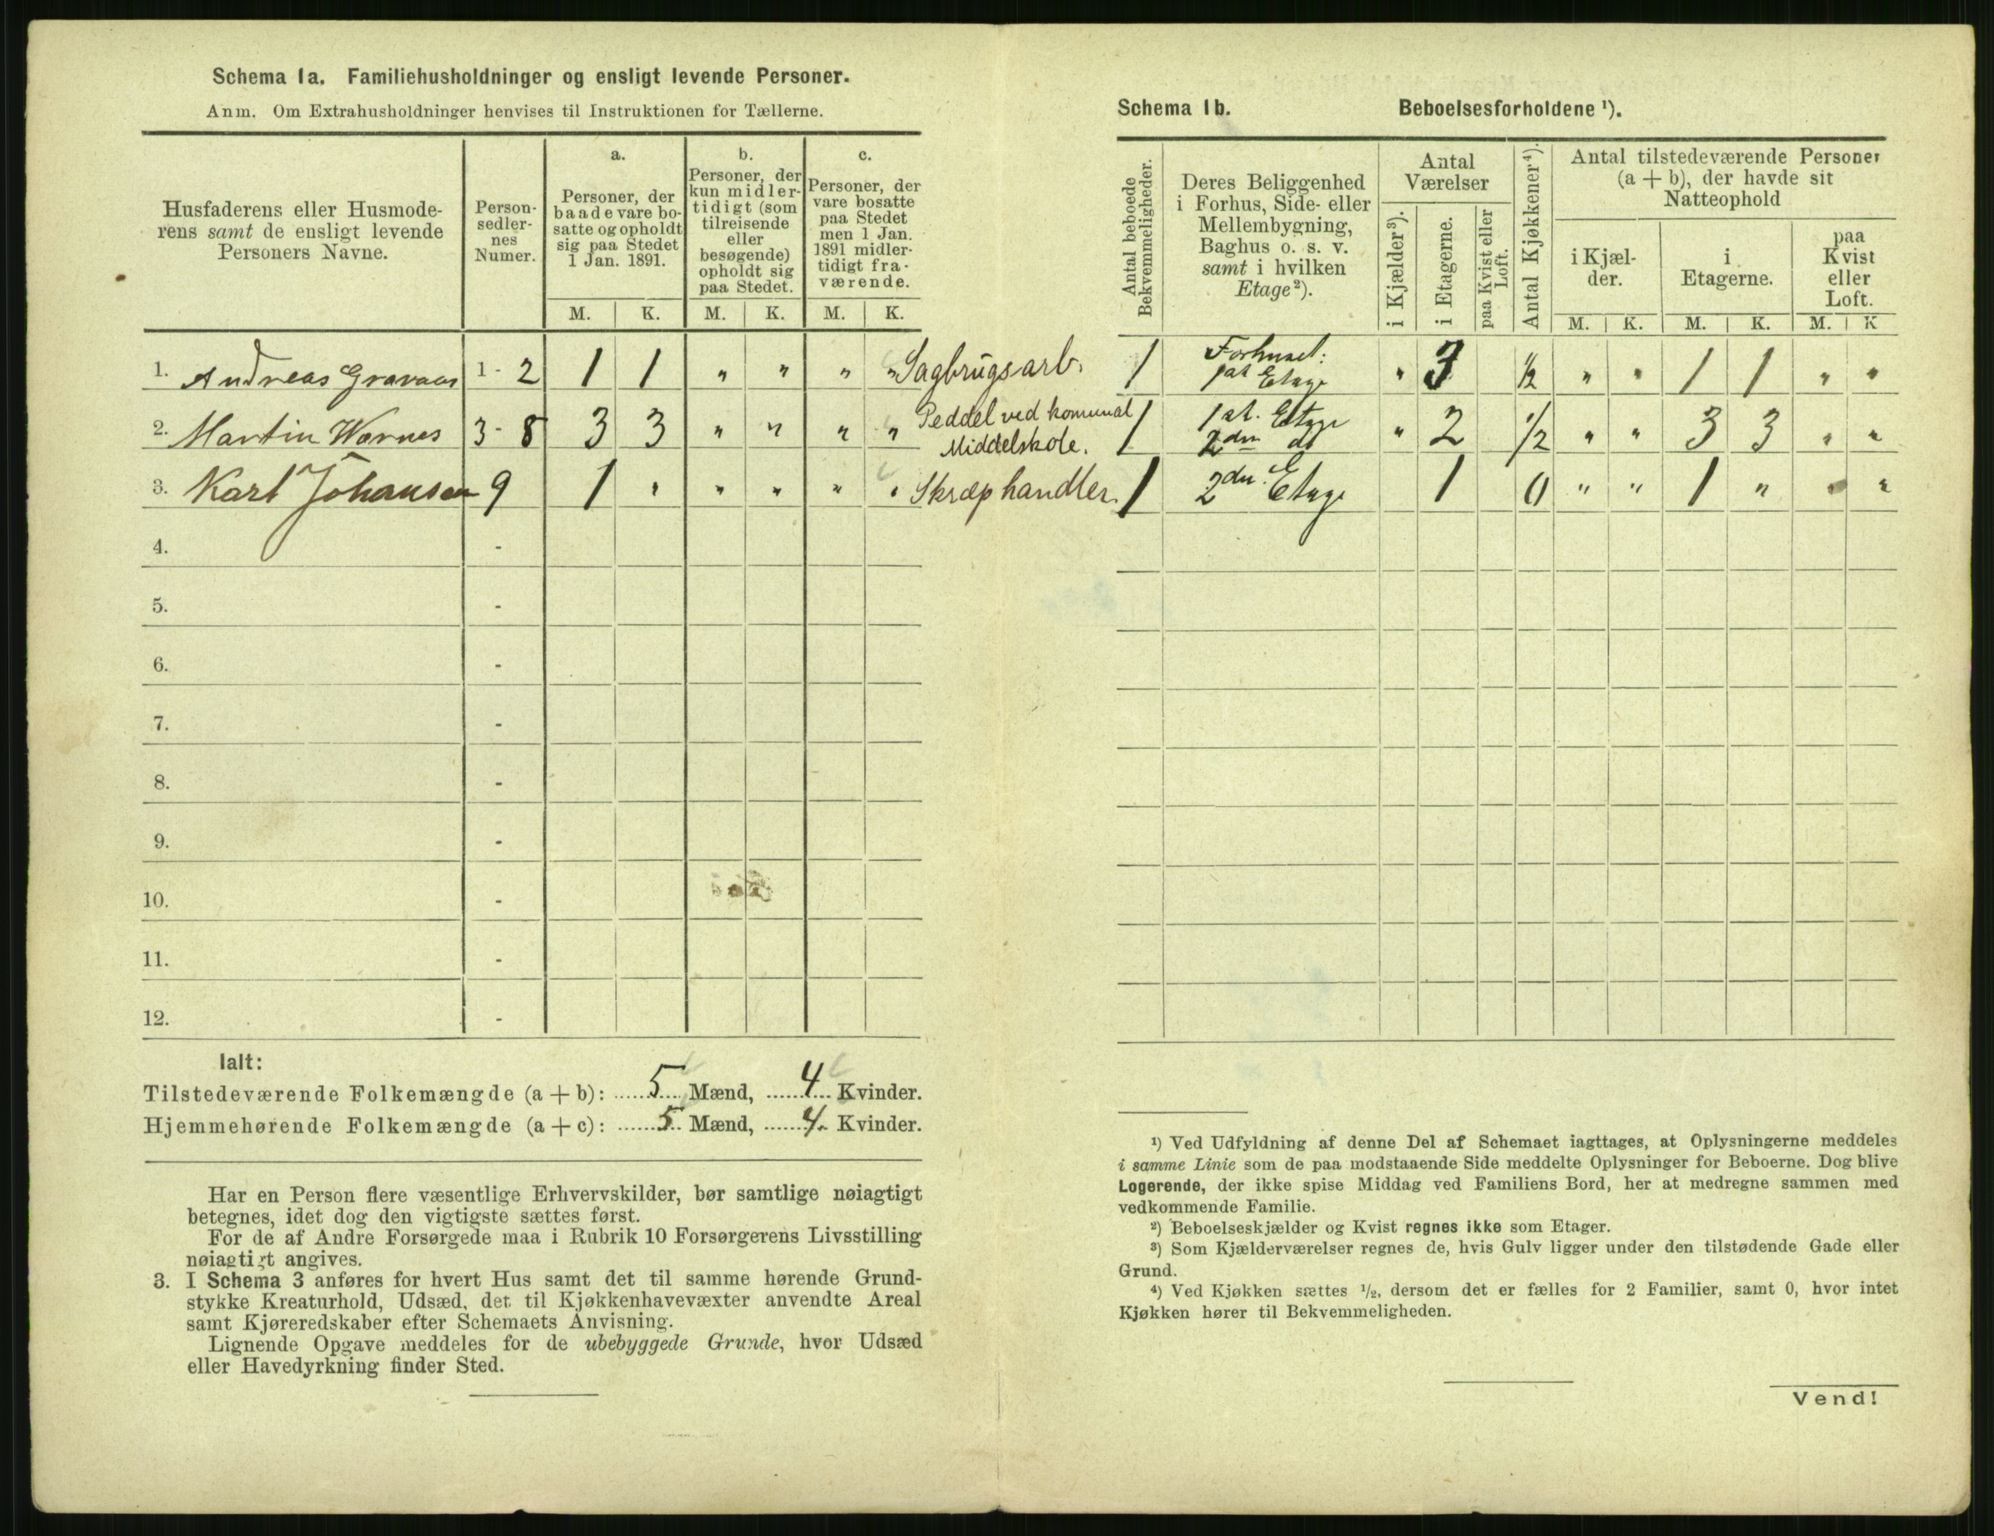 Schema 1a. Familiehusholdninger og ensligt levende Personer.
Anm. Om Extrahusholdninger henvises til Instruktionen for Tællerne.
Husfaderens eller Husmode-
rens samt de ensligt levende
Personers Navne.
Person-
sedler-
nes
Numer.
a.
Personer, der
baade vare bo-
satte og opholdt
sig paa Stedet
1 Jan. 1891.
b.
Personer, der
kun midler-
tidigt (som
tilreisende
eller
besøgende)
opholdt sig
paa Stedet.
c.
Personer, der
vare bosatte
paa Stedet
men 1 Jan.
1891 midler-
tidigt fra-
værende.
M. K. M. K. M. K.
1. Andreas Gravaas 1 - 2 1 1 " " " " Sagbrugsarb.
2. Martin Warnes 3 - 8 3 3 " " " " Peddel ved komunal
Middelskole.
3. Karl Johansen 9 1 " " " " " Skræphandler.
4. -
5. -
6. -
7. -
8. -
9. -
10. -
11. -
12. -
Ialt:
Tilstedeværende Folkemængde (a + b): 5 Mænd, 4 Kvinder.
Hjemmehørende Folkemængde (a + c): 5 Mænd, 4 Kvinder.
Har en Person flere væsentlige Erhvervskilder, bør samtlige nøiagtigt
betegnes, idet dog den vigtigste sættes først.
For de af Andre Forsørgede maa i Rubrik 10 Forsørgerens Livsstilling
nøiagtigt angives.
3. I Schema 3 anføres for hvert Hus samt det til samme hørende Grund-
stykke Kreaturhold, Udsæd, det til Kjøkkenhavevæxter anvendte Areal
samt Kjøreredskaber efter Schemaets Anvisning.
Lignende Opgave meddeles for de ubebyggede Grunde, hvor Udsæd
eller Havedyrkning finder Sted.
Schema 1b. Beboelsesforholdene ¹).
Antal beboede
Bekvemmeligheder.
Deres Beliggenhed
i Forhus, Side- eller
Mellembygning,
Baghus o. s. v.
samt i hvilken
Etage ²).
Antal
Værelser
i Kjælder ³).
i Etagerne.
paa Kvist eller
Loft.
Antal Kjøkkener ⁴).
Antal tilstedeværende Personer
(a + b), der havde sit
Natteophold
i Kjæl-
der.
i
Etagerne.
paa
Kvist
eller
Loft.
M. K. M. K. M. K
1 Forhuset:
1st Etage " 3 1/2 " " 1 1 " "
1 1st. Etage
2den do " 2 1/2 " " 3 3 " "
1 2den Etage 1 0 " " 1 " " "
¹) Ved Udfyldning af denne Del af Schemaet iagttages, at Oplysningerne meddeles
i samme Linie som de paa modstaaende Side meddelte Oplysninger for Beboerne. Dog blive
Logerende, der ikke spise Middag ved Familiens Bord, her at medregne sammen med
vedkommende Familie.
²) Beboelseskjælder og Kvist regnes ikke som Etager.
³) Som Kjælderværelser regnes de, hvis Gulv ligger under den tilstødende Gade eller
Grund.
⁴) Ved Kjøkken sættes ½, dersom det er fælles for 2 Familier, samt 0, hvor intet
Kjøkken hører til Bekvemmeligheden.
Vend!